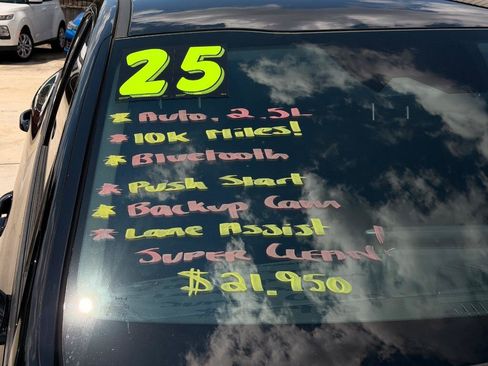 25
* Auto, 2.5L
* 10K Miles!
* Bluetooth
* Push Start
* Backup Cam
* Lane Assist +
Super Clean -
$21,950